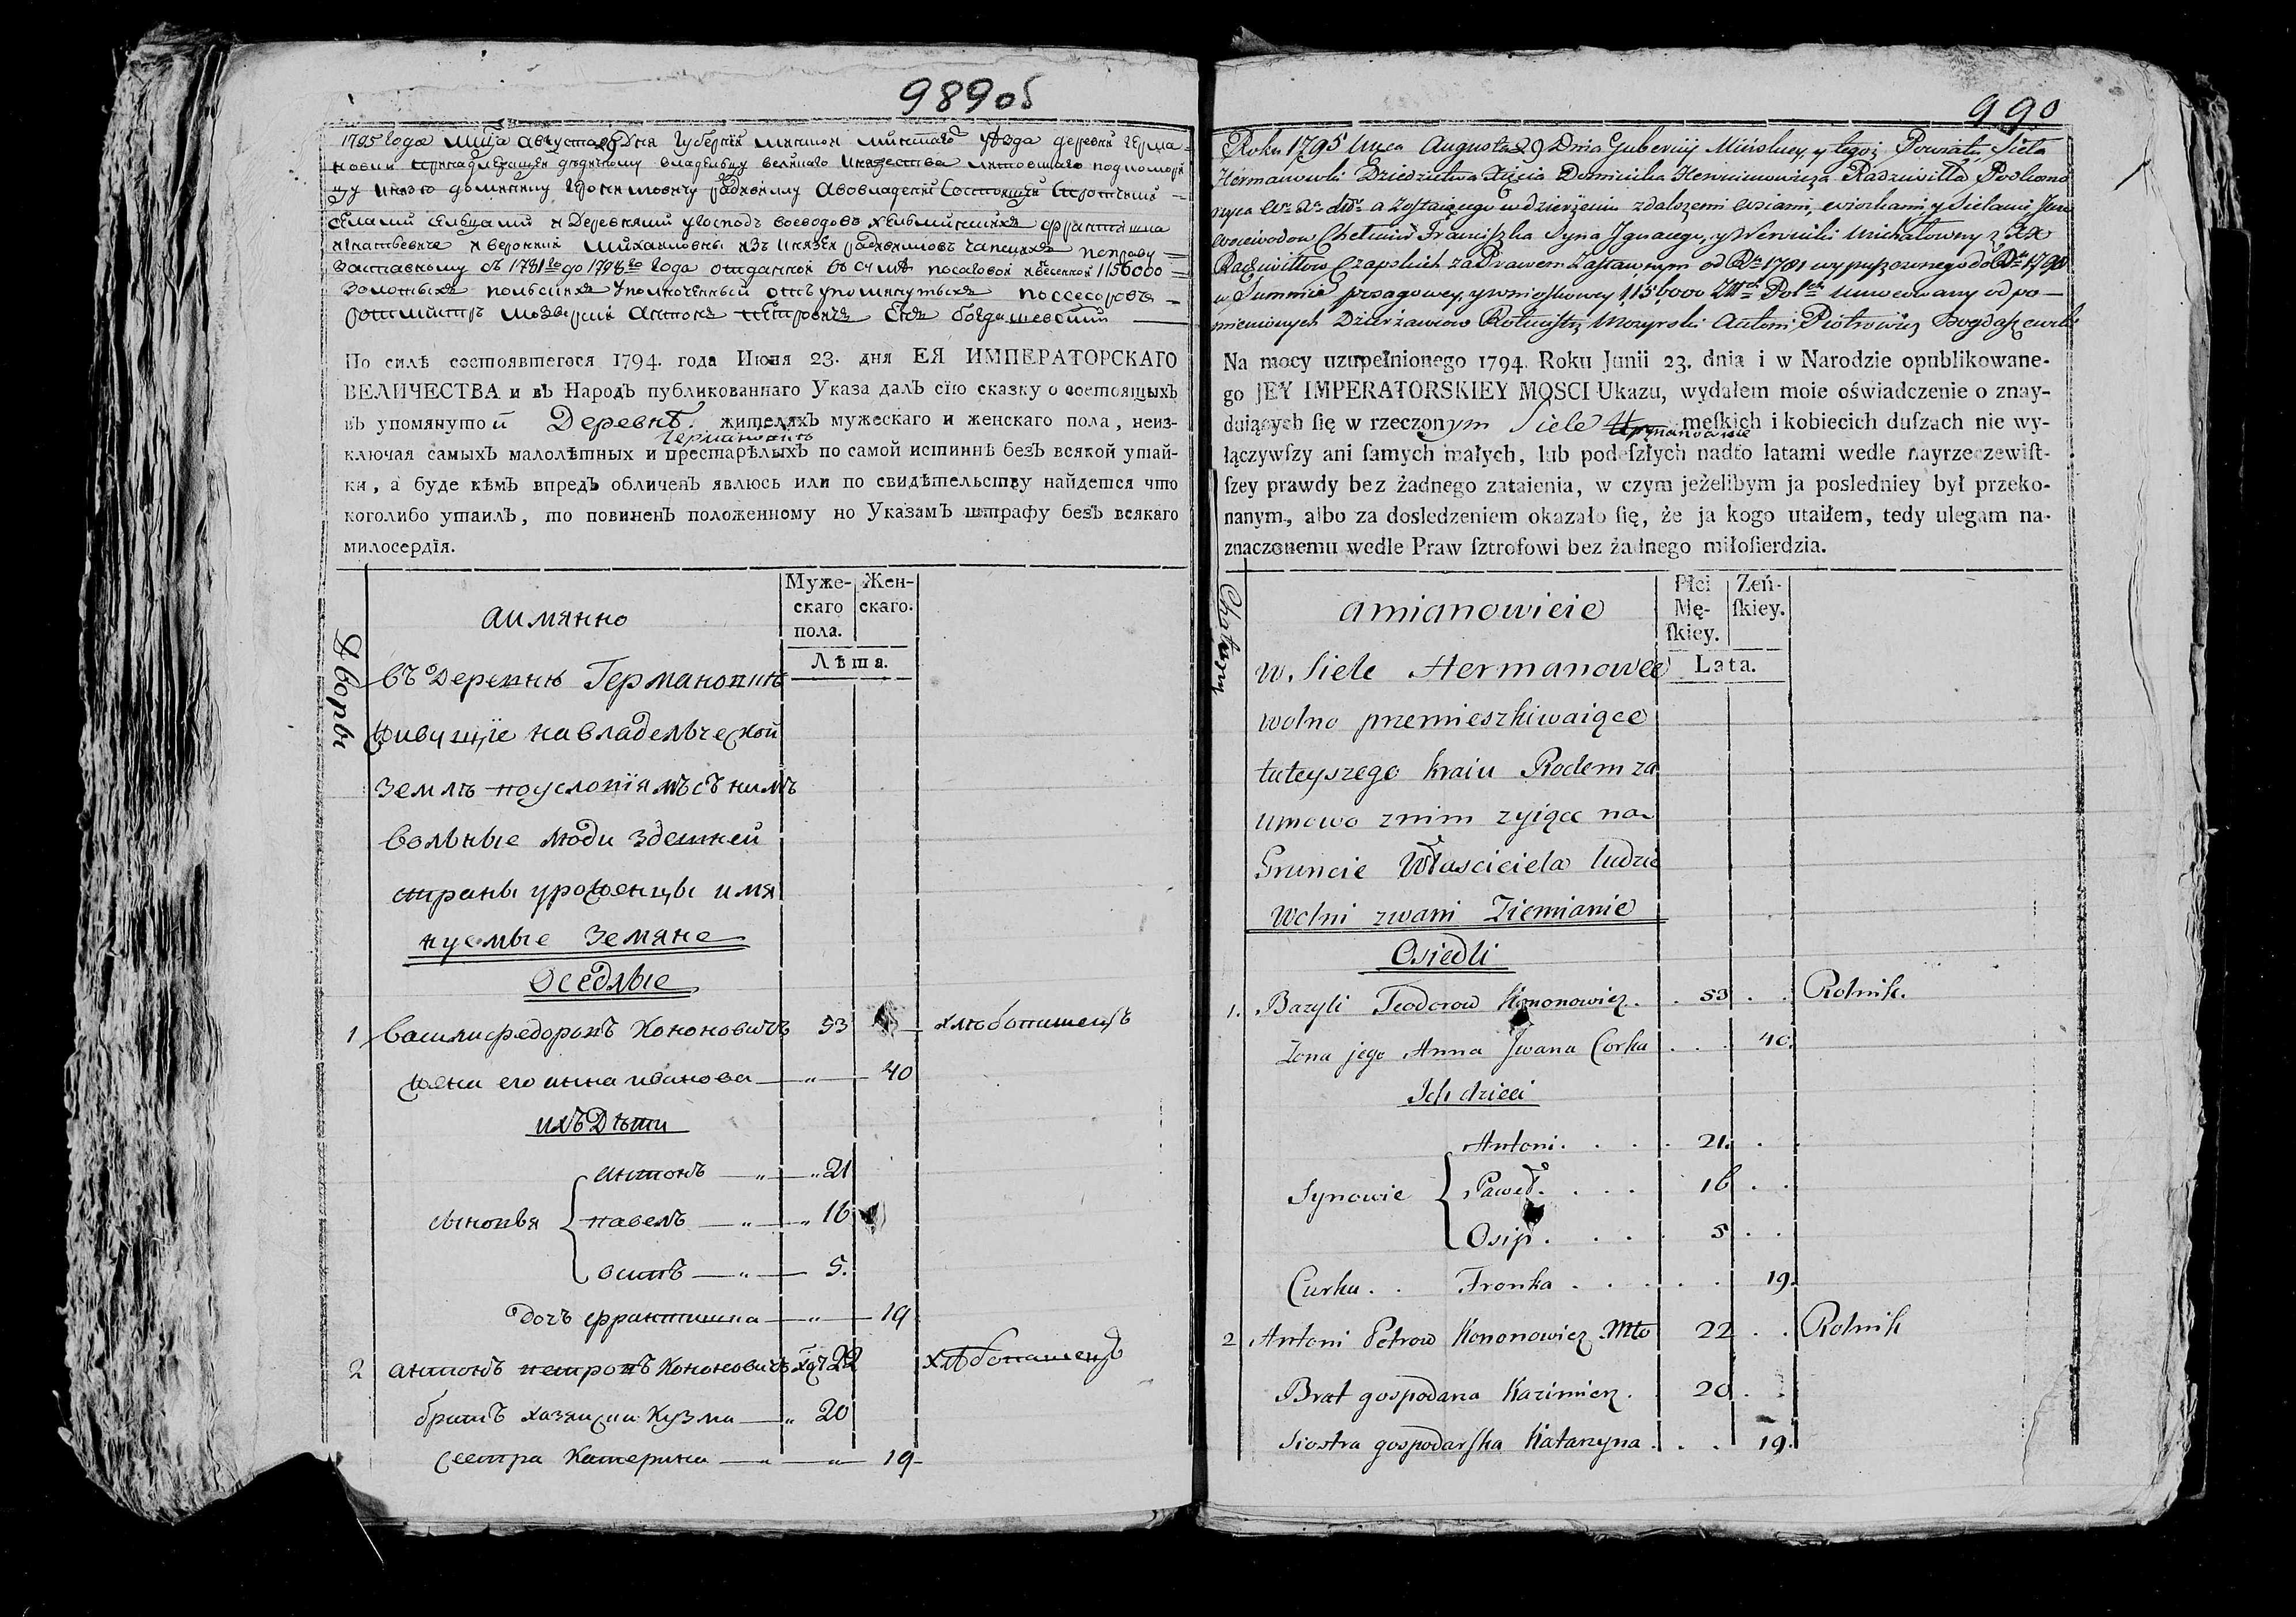 989об
1795 года мца августа 29 Дня Губернїи минской минскаго уѣзда деревни Герма-
новки принадлежащей дѣдичному владельцу великаго княжества литовскаго подкомори
му князю доминику Иеронимовичу радзивилу Авовладенїи Состоящей
селами сельцами и Деревнями угосподъ воеводовъ хельминскихъ францишка
игнатьевича и вероники михаиловны изъ князей радзивиловъ чапскихъ поправу
заставному съ 1781го до 1798го года отданной въ сумѣ посаговой ивесенной 1156000
золотыхъ польскихъ уполномоченный отъ упомянутыхъ поссесоровъ
ротмистръ мозырскїй антонъ петровичъ богдашевскїй
По силѣ состоявшегося 1794. года Июня 23. дня ЕЯ ИМПЕРАТОРСКАГО
ВЕЛИЧЕСТВА и въ Народъ публикованнаго Указа далъ сїю сказку о состоящыхъ
въ упомянутой Деревнѣ жителяхъ мужескаго и женскаго пола, неиз-
Германовкѣ
ключая самыхъ малолѣтныхъ и престарѣлыхъ по самой истиннѣ безъ всякой утай-
ки, а буде кѣмъ впредъ обличенъ явлюсь или по свидѣтельству найдется что
коголибо утаилъ, то повиненъ положенному по Указамъ штрафу безъ всякаго
милосердїя.
Дворы
аимянно
Муже-
скаго
пола.
Жен-
скаго.
Лѣта.
въ Деревнѣ Германовкѣ
живущїе на владельческой
землѣ по условїямъ съ нимъ
вольные люди здешней
страны уроженцы имя
нуемые Земяне
Оседлые
1 василий федоровъ Кононовичъ 53 хлѣбопашецъ
жена его анна иванова 40
ихъ Дѣти
сыновья
антонъ 21
павелъ 16
осипъ 5.
дочь францишка 19
2 антонъ петровъ Кононовичъ хол 22 хлѣбопашецъ
братъ хазяйскии Кузма 20
сестра Катерина 19
990
Roku 1795 Mca Augusta 29 Dnia Gubernij Mińskiey, y tegoż Powiatu, Sieła
Hermanowki Dziedzictwa Xięcia Dominika Heronimowicza Radziwiłła Podkomo
rzyca Wo Xa Litto a zostaiącego w dzierżeniu zdalszemi wsiami, wioskami y Siełami,
Woiewodow Chełmiń Franciszka Syna Jgnacego, y Weroniki Michałowny z XX
Radziwiłłow Czapskich za Prawem Zastawnym od Rku 1781 wypuszczonego do Rku 1798
w Summie posagowey, y wnioskowey 1156000 Złłch Polch Umocowany od po-
mienionych Dzierżawcow Rotmistrz Mozyrski Antoni Piotrowicz Bogdaszewski
Na mocy uzupełnionego 1794. Roku Junii 23. dnia i w Narodzie opublikowane-
go JEY IMPERATORSKIEY MOSCI Ukazu, wydałem moie oświadczenie o znay-
duiących ſię w rzeczonym Siele męſkich i kobiecich duſzach nie wy-
Hermanowce
łączywſzy ani ſamych małych, lub podeſzłych nadto latami wedle nayrzeczewiſt-
ſzey prawdy bez żadnego zataienia, w czym jeżelibym ja posledniey był przeko-
nanym, albo za dosledzeniem okazało ſię, że ja kogo utaiłem, tedy ulegam na-
znaczonemu wedle Praw ſztrofowi bez żadnego miłoſierdzia.
Chatury
amianowicie
Płci
Mę-
ſkiey.
Zeń-
ſkiey.
Lata.
w. Siele Hermanowce
wolno przemieszkiwaiące
tuteyszego kraiu Rodem za
umowo znim zyiące na
Gruncie Własciciela ludzie
Wolni zwani Ziemianie
Osiedli
1. Bazyli Teodorow Kononowicz. 53 Rolnik.
Zona jego Anna Jwana Corka 40.
Ich dzieci
Synowie
Antoni. 21.
Paweł. 16
Osip. 5
Curka. Fronka 19.
2 Antoni Petrow Kononowicz Mło 22 Rolnik
Brat gospodara Kazimierz. 20
Siostra gospodarska Katarzyna. 19.